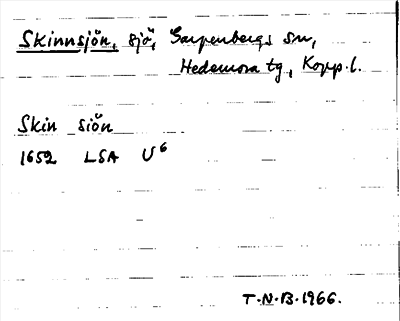 Skinnsjön, sjö, Garpenbergs sn,
Hedemora tg, Kopp. l.
Skin siön
1652 LSA U6
T.N.B. 1966.